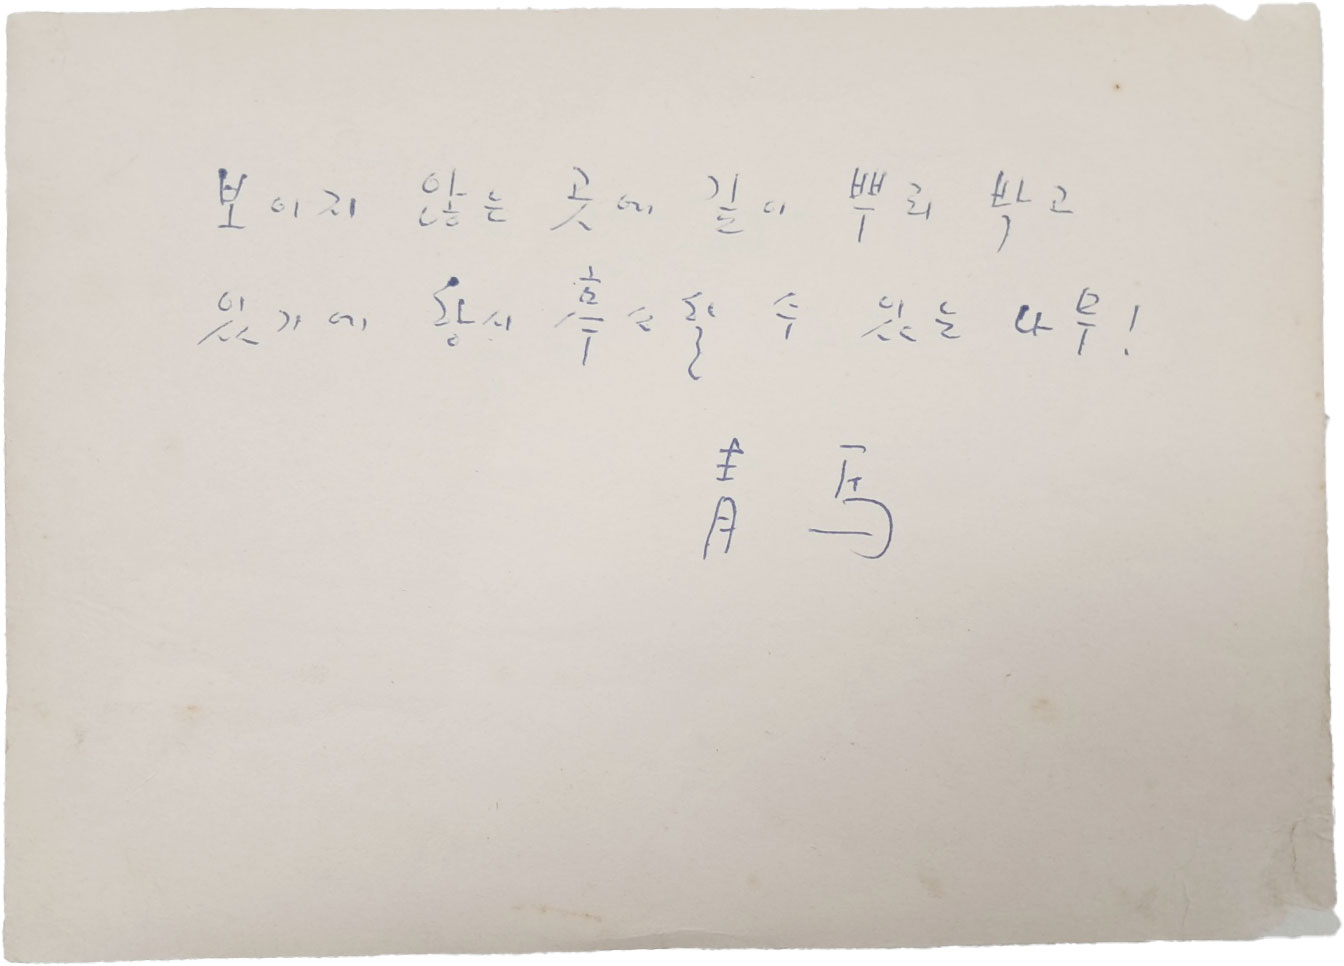 보이지 않는 곳에 깊이 뿌리 박고
있기에 항시 수 있는 나무!
靑馬